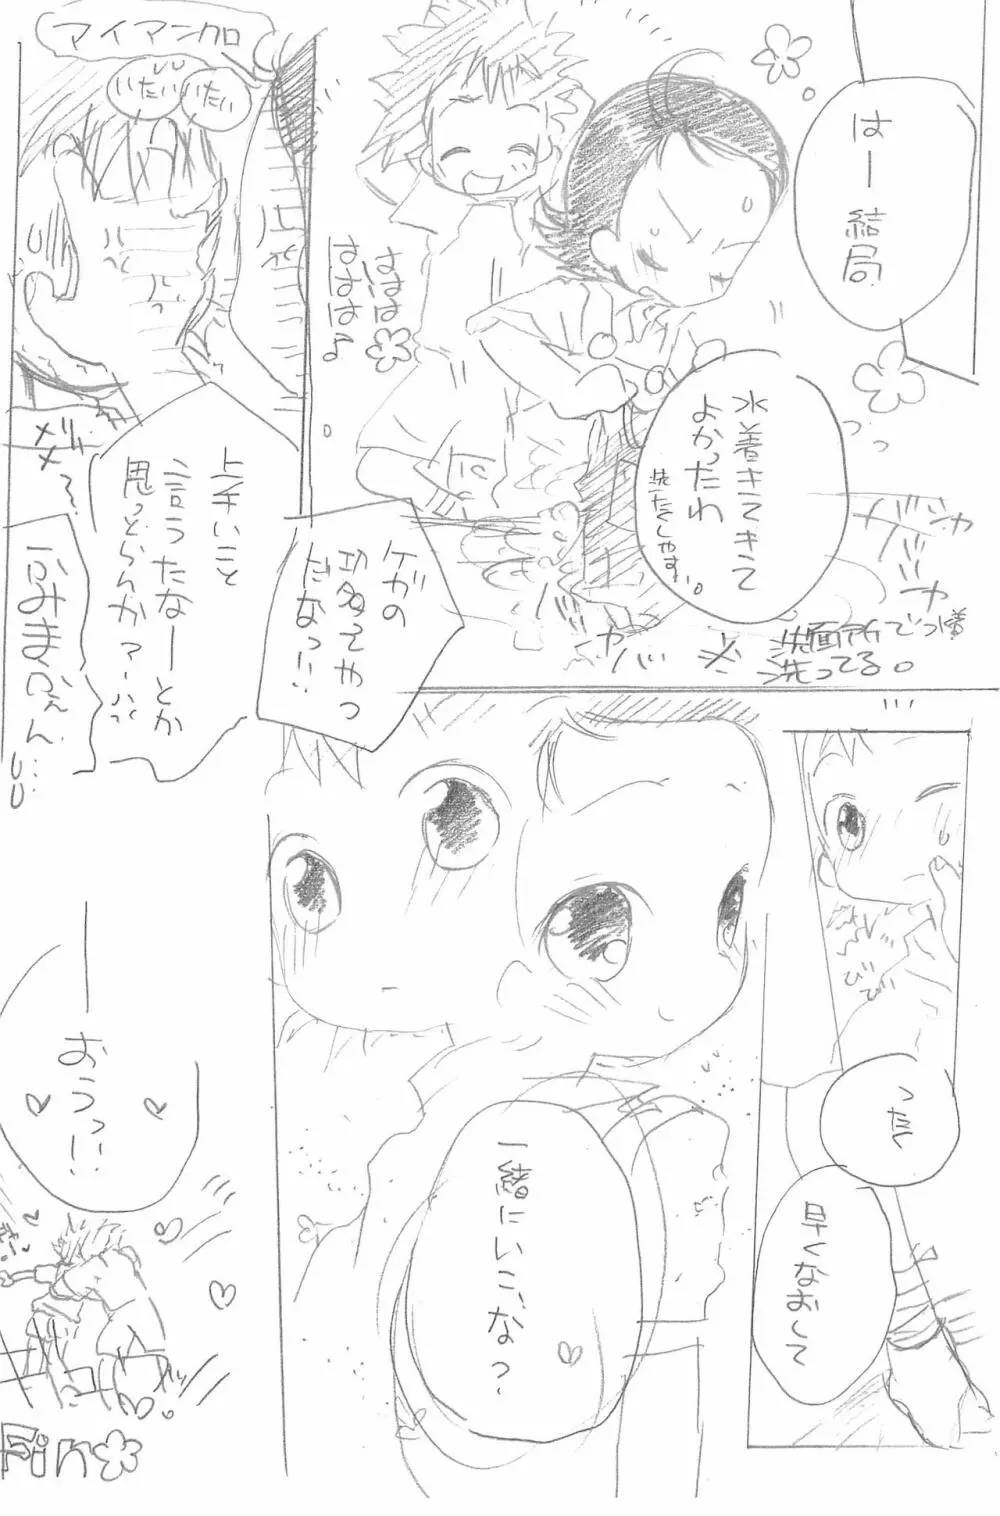 はー
結局
水着きてきて
よかったわ
洗たくしやすい。
ははは
はははは♪
ジャバ
ジャバ
ジャバ
洗面所で水着
洗ってる。
マイマン加
いたい
いたい
ケガの
功名ってやつ
だなっ!!
上手いこと
言うたなーとか
思っとらんかァー!!
ふみまふぇん…
びび
ったく
早くなおして
一緒にいこ、な?
おうっ!!
Fin